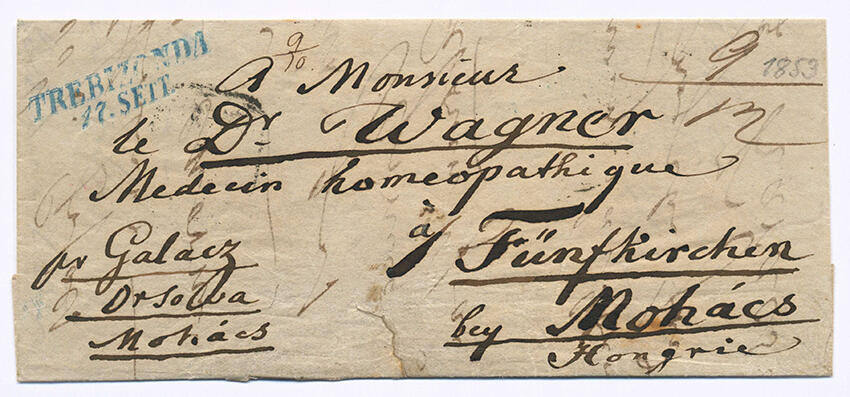 TREBIZONDA
17. SETT.
9/10
A Monsieur
9
1853
le Dr Wagner
Medecin homeopathique
à Fünfkirchen
pr Galacz
Orsolva
Mohács
bey Mohács
Hongrie